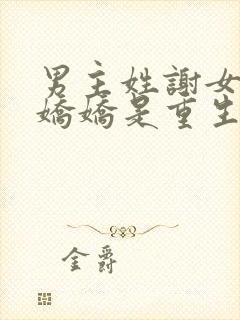 男主姓謝女
嬌嬌是重生
金爵